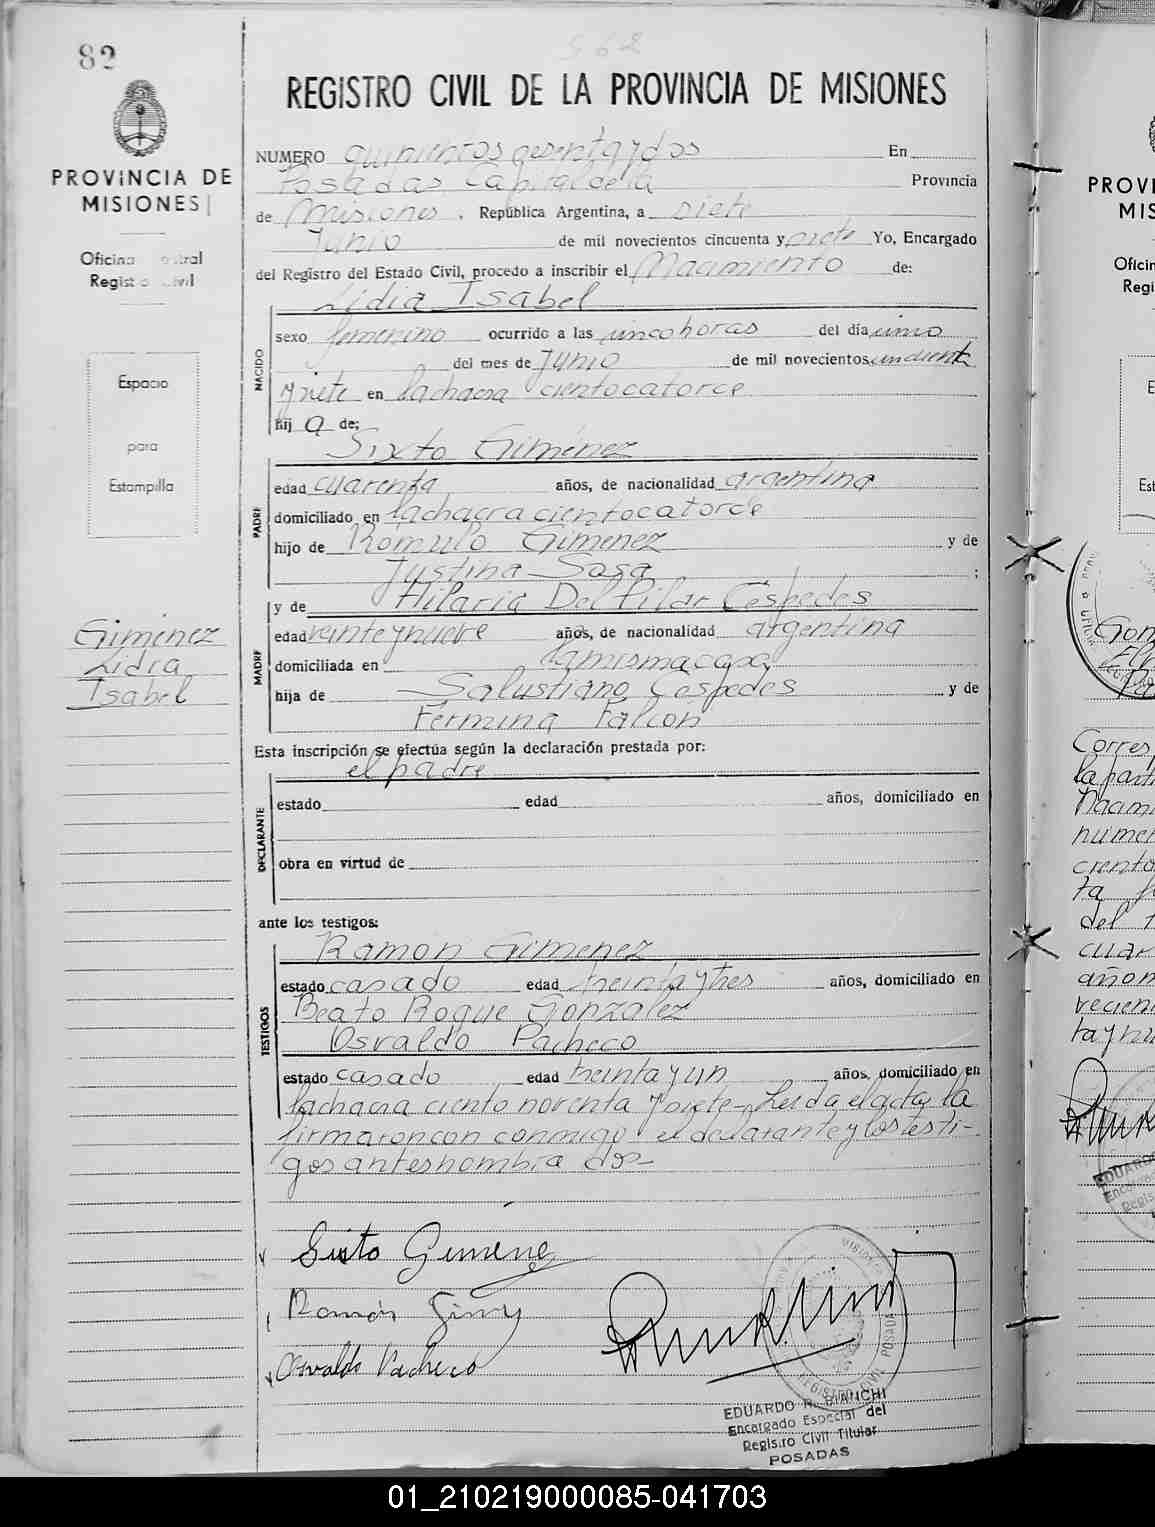 82
562
REGISTRO CIVIL DE LA PROVINCIA DE MISIONES
PROVINCIA DE
MISIONES
Oficina Central
Registro Civil
Espacio
para
Estampilla
Giménez
Lidia
Isabel
NUMERO quinientos sesentaydos En
Posadas Capital de la Provincia
de Misiones. República Argentina, a siete
Junio de mil novecientos cincuenta y siete Yo, Encargado
del Registro del Estado Civil, procedo a inscribir el Nacimiento de:
NACIDO
Lidia Isabel
sexo femenino ocurrido a las cinco horas del día uno
del mes de Junio de mil novecientos
y siete en lachacra cientocatorce
hij a de:
PADRE
Sixto Giménez
edad cuarenta años, de nacionalidad argentina
domiciliado en lachacra cientocatorce
hijo de Romulo Gimenez y de
Justina Sosa ;
MADRE
y de Hilaria Del Pilar Céspedes
edad veinteynueve años, de nacionalidad argentina
domiciliada en lamismacasa
hija de Salustiano Céspedes y de
Fermina Falcón
Esta inscripción se efectúa según la declaración prestada por:
el padre
DECLARANTE
estado edad años, domiciliado en
obra en virtud de
ante los testigos:
TESTIGOS
Ramon Gimenez
estado casado edad treintaytres años, domiciliado en
Beato Roque Gonzalez
Osvaldo Pacheco
estado casado edad treintayun años, domiciliado en
lachacra ciento noventa y siete - Leida el acta la
firmaron con conmigo el declarante y los testi-
gos antes nombra dos-
Sixto Gimenez
Ramón
Osvaldo Pacheco
EDUARDO R. BIANCHI
Encargado Especial del
Registro Civil Titular
POSADAS
PROVI
MIS
Oficin
Regi
E
Est
Gon
Corres
la parti
Nacim
numer
ciento
ta
del
cuar
año m
vecien
ta y nu
EDUARDO
Encarg
Regis
01_210219000085-041703